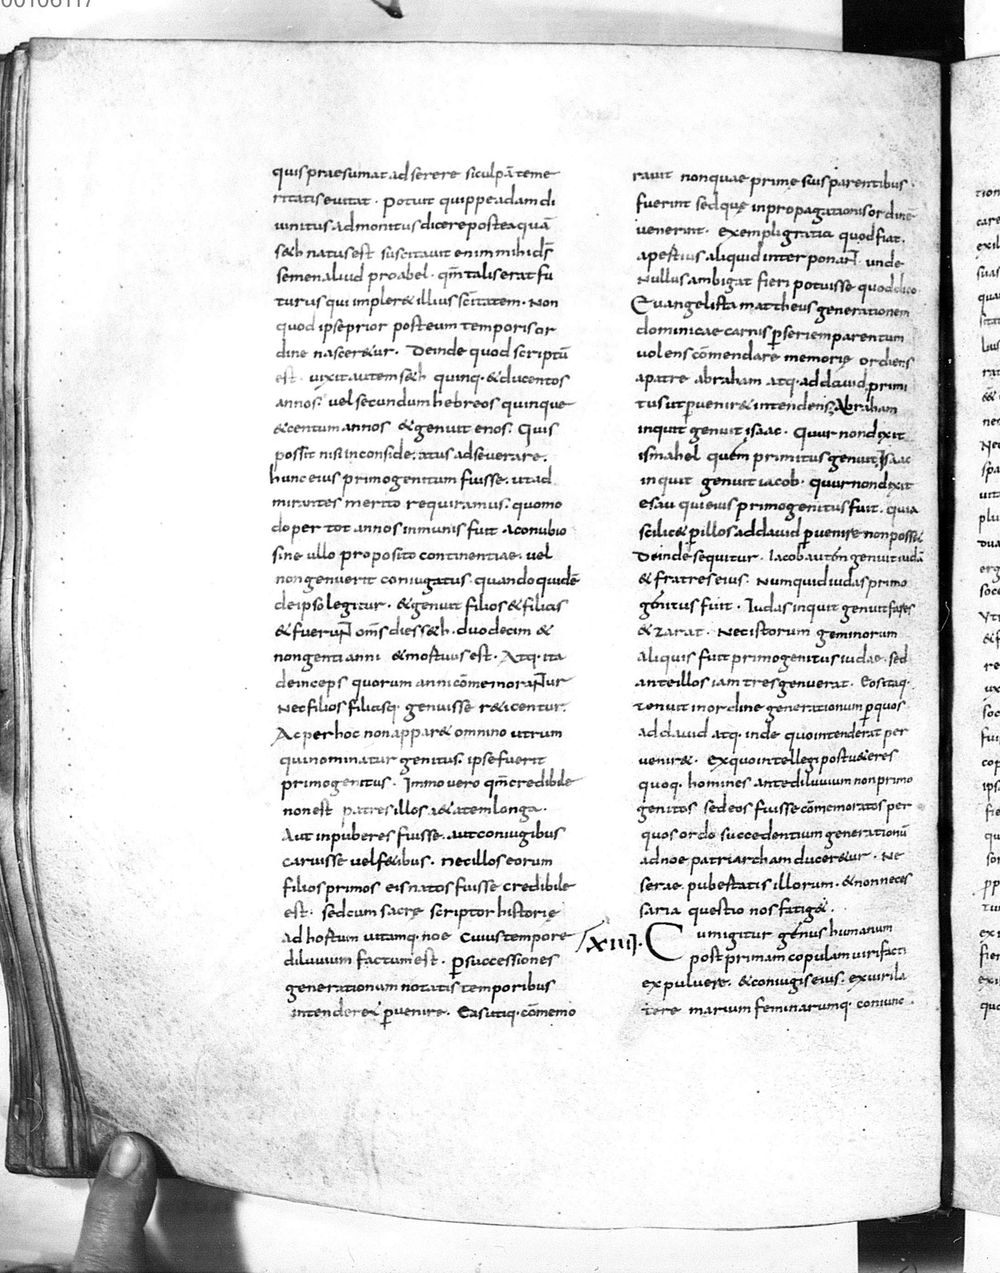 00106117
quis praesumat adserere sic ulpā teme
ritatis euitat. potuit quippe adam di
uinitus admonitus dicere postea quā
s&h natus est suscitauit enim mihi d̄s
semen aliud pro abel. qm̄ talis erat fu
turus qui impler& illius sc̄itatem. Non
quod ipse prior post eum temporis or
dine nascer&ur. Deinde quod scriptū
est. uixit autem s&h quinq. & ducentos
annos. uel secundum hebreos quinque
& centum annos & genuit enos. Quis
possit nisi inconsideratus adseuerare.
hunc eius primogenitum fuisse. ut ad
mirantes merito requiramus. quomo
do per tot annos inmunis fuit a conubio
sine ullo proposito continentiae. uel
non genuerit coniugatus. quando quidē
de ipso legitur. & genuit filios & filias
& fuerunt om̄s dies s&h. duodecim &
nongenti anni & mortuus est. Atq. ita
deinceps quorum anni cōmemorantur
Nec filios filiasq. genuisse r&icentur.
Ac per hoc non appar& omnino utrum
qui nominatur genitus. ipse fuerit
primogenitus. Immo uero qm̄ credibile
non est patres illos a&ate longa.
Aut inpuberes fuisse. aut coniugibus
caruisse uel f&ibus. nec illos eorum
filios primos eis natos fuisse credibile
est. sed cum sacrę scriptor historię
ad hortum uitamq. noe cuius tempore
diluuium factum est. ꝑ successiones
generationum notatis temporibus
intender& ꝑuenire. Eas utiq. cōmemo
rauit non quae prime suis parentibus.
fuerint sed quę in propagationis ordinē
uenerint. exempli gratia quod fiat.
apertius aliquid interponam. unde
Nullus ambigat fieri potuisse quod dico
Euangelista mattheus generationem
dominicae carnis ꝑ seriem parentum
uolens cōmendare memorię ordiens
a patre abraham atq. ad dauid primi
tus ut ꝑuenir& intendens. Abraham
inquit genuit isaac. Quur non dixit
ismahel quem primitus genuit Isaac
inquit genuit iacob. quur non dixit
esau qui eius primogenitus fuit. quia
scilic& ꝑ illos ad dauid ꝑuenire non poss&
Deinde sequitur. Iacob autem genuit iudā
& fratres eius. Numquid iudas primo
genitus fuit. Iudas inquit genuit fares
& zarat. Nec istorum geminorum
aliquis fuit primogenitus iudae. sed
ante illos iam tres genuerat. Eos itaq.
tenuit in ordine generationum ꝑ quos
ad dauid atq. inde quo intenderat per
uenir&. Ex quo intellegi post u&eres
quoq. homines ante diluuium non primo
genitos sed eos fuisse cōmemoratos per
quos ordo succedentium generationū
ad noe patriarcham ducer&ur. Ne
serae pubertatis illorum. & non neces
saria questio nos fatig&.
XIIIJ. Cum igitur genus humanum
post primam copulam uiri facti
ex puluere. & coniugis eius. ex uiri la
tere marium feminarumq. coniunc